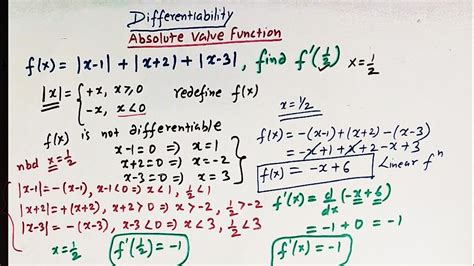 Differentiability
Absolute Value Function
f(x) = |x-1| + |x+2| + |x-3|, find f'(1/2) x=1/2
|x| = { +x, x≥0
-x, x<0
redefine f(x)
f(x) is not differentiable
x-1=0 ⇒ x=1
x+2=0 ⇒ x=-2
x-3=0 ⇒ x=3
nbd x=1/2
|x-1| = -(x-1), x-1<0 ⇒ x<1, 1/2<1
|x+2| = +(x+2), x+2>0 ⇒ x>-2, 1/2>-2
|x-3| = -(x-3), x-3<0 ⇒ x<3, 1/2<3
x=1/2 f'(1/2) = -1
x=1/2
f(x) = -(x-1)+(x+2)-(x-3)
= -x+1+x+2-x+3
f(x) = -x+6 Linear fⁿ
f'(x) = d/dx (-x+6)
= -1+0 = -1
f'(x) = -1